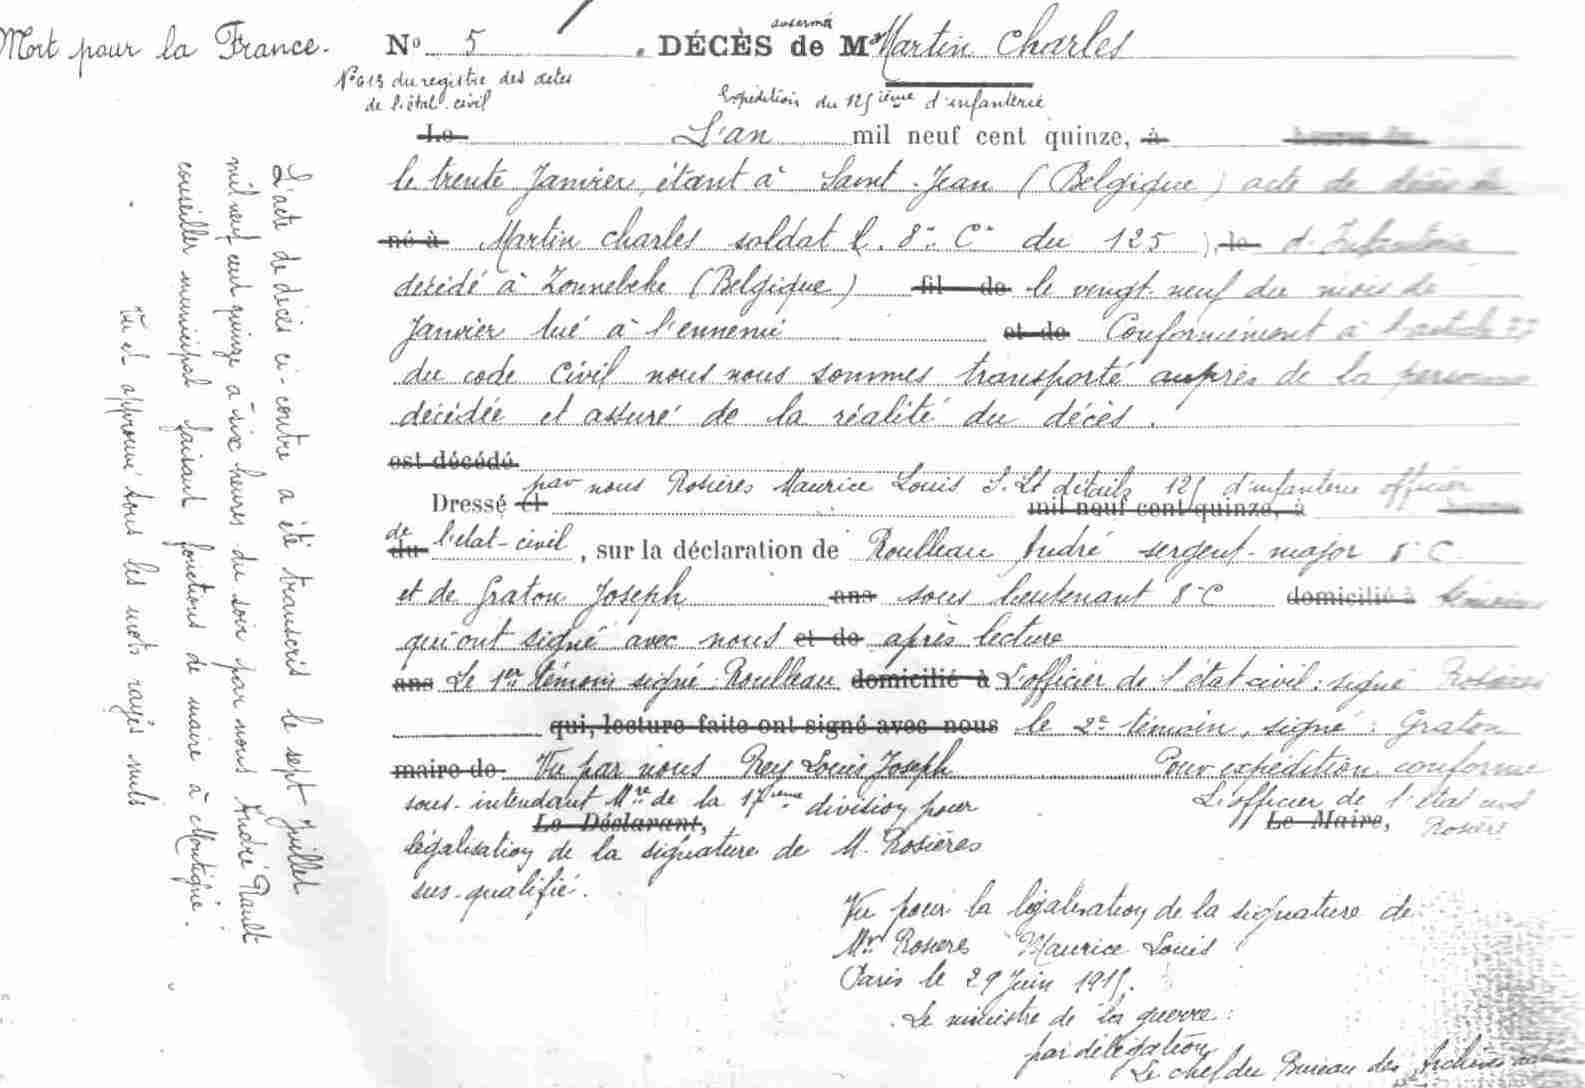 Mort pour la France.
No 5. DÉCÈS de M Martin Charles
No 613 du registre des actes
de l'état-civil
Expédition du 125ième d'infanterie
Le L'an mil neuf cent quinze, à
le trente Janvier, étant à Saint-Jean (Belgique) acte de décès de
né à Martin Charles soldat 8e Cie du 125 , le d'Infanterie
décédé à Zonnebeke (Belgique) fil de le vingt-neuf du mois de
Janvier tué à l'ennemi et de Conformément à l'article 77
du code civil nous nous sommes transporté auprès de la personne
décédée et assuré de la réalité du décès.
est décédé
par nous Rosières Maurice Louis S. Lt détails 125 d'infanterie officier
Dressé et mil neuf cent quinze, à
de
du l'état-civil, sur la déclaration de Roulleau André sergent-major 8e C
et de Graton Joseph ans sous lieutenant 8e C domicilié à témoins
qui ont signé avec nous et de après lecture
ans Le 1er témoin signé : Roulleau domicilié à L'officier de l'état civil : signé Rosières
qui, lecture faite ont signé avec nous le 2e témoin, signé : Graton
maire de Vu par nous Rey Louis Joseph Pour expédition conforme
sous-intendant Mre de la 17ième division pour L'officier de l'état civil
Le Déclarant, Le Maire, Rosière
légalisation de la signature de M. Rosières
sus-qualifié.
Vu pour la légalisation de la signature de
Mr Rosières Maurice Louis
Paris le 29 Juin 1915.
Le ministre de la guerre :
par délégation
Le chef du Bureau des Archives
L'acte de décès ci-contre a été transcrit le sept Juillet
mil neuf cent quinze à six heures du soir par nous André Rault
conseiller municipal faisant fonctions de maire à Montigné.
Vu et approuvé tous les mots rayés nuls